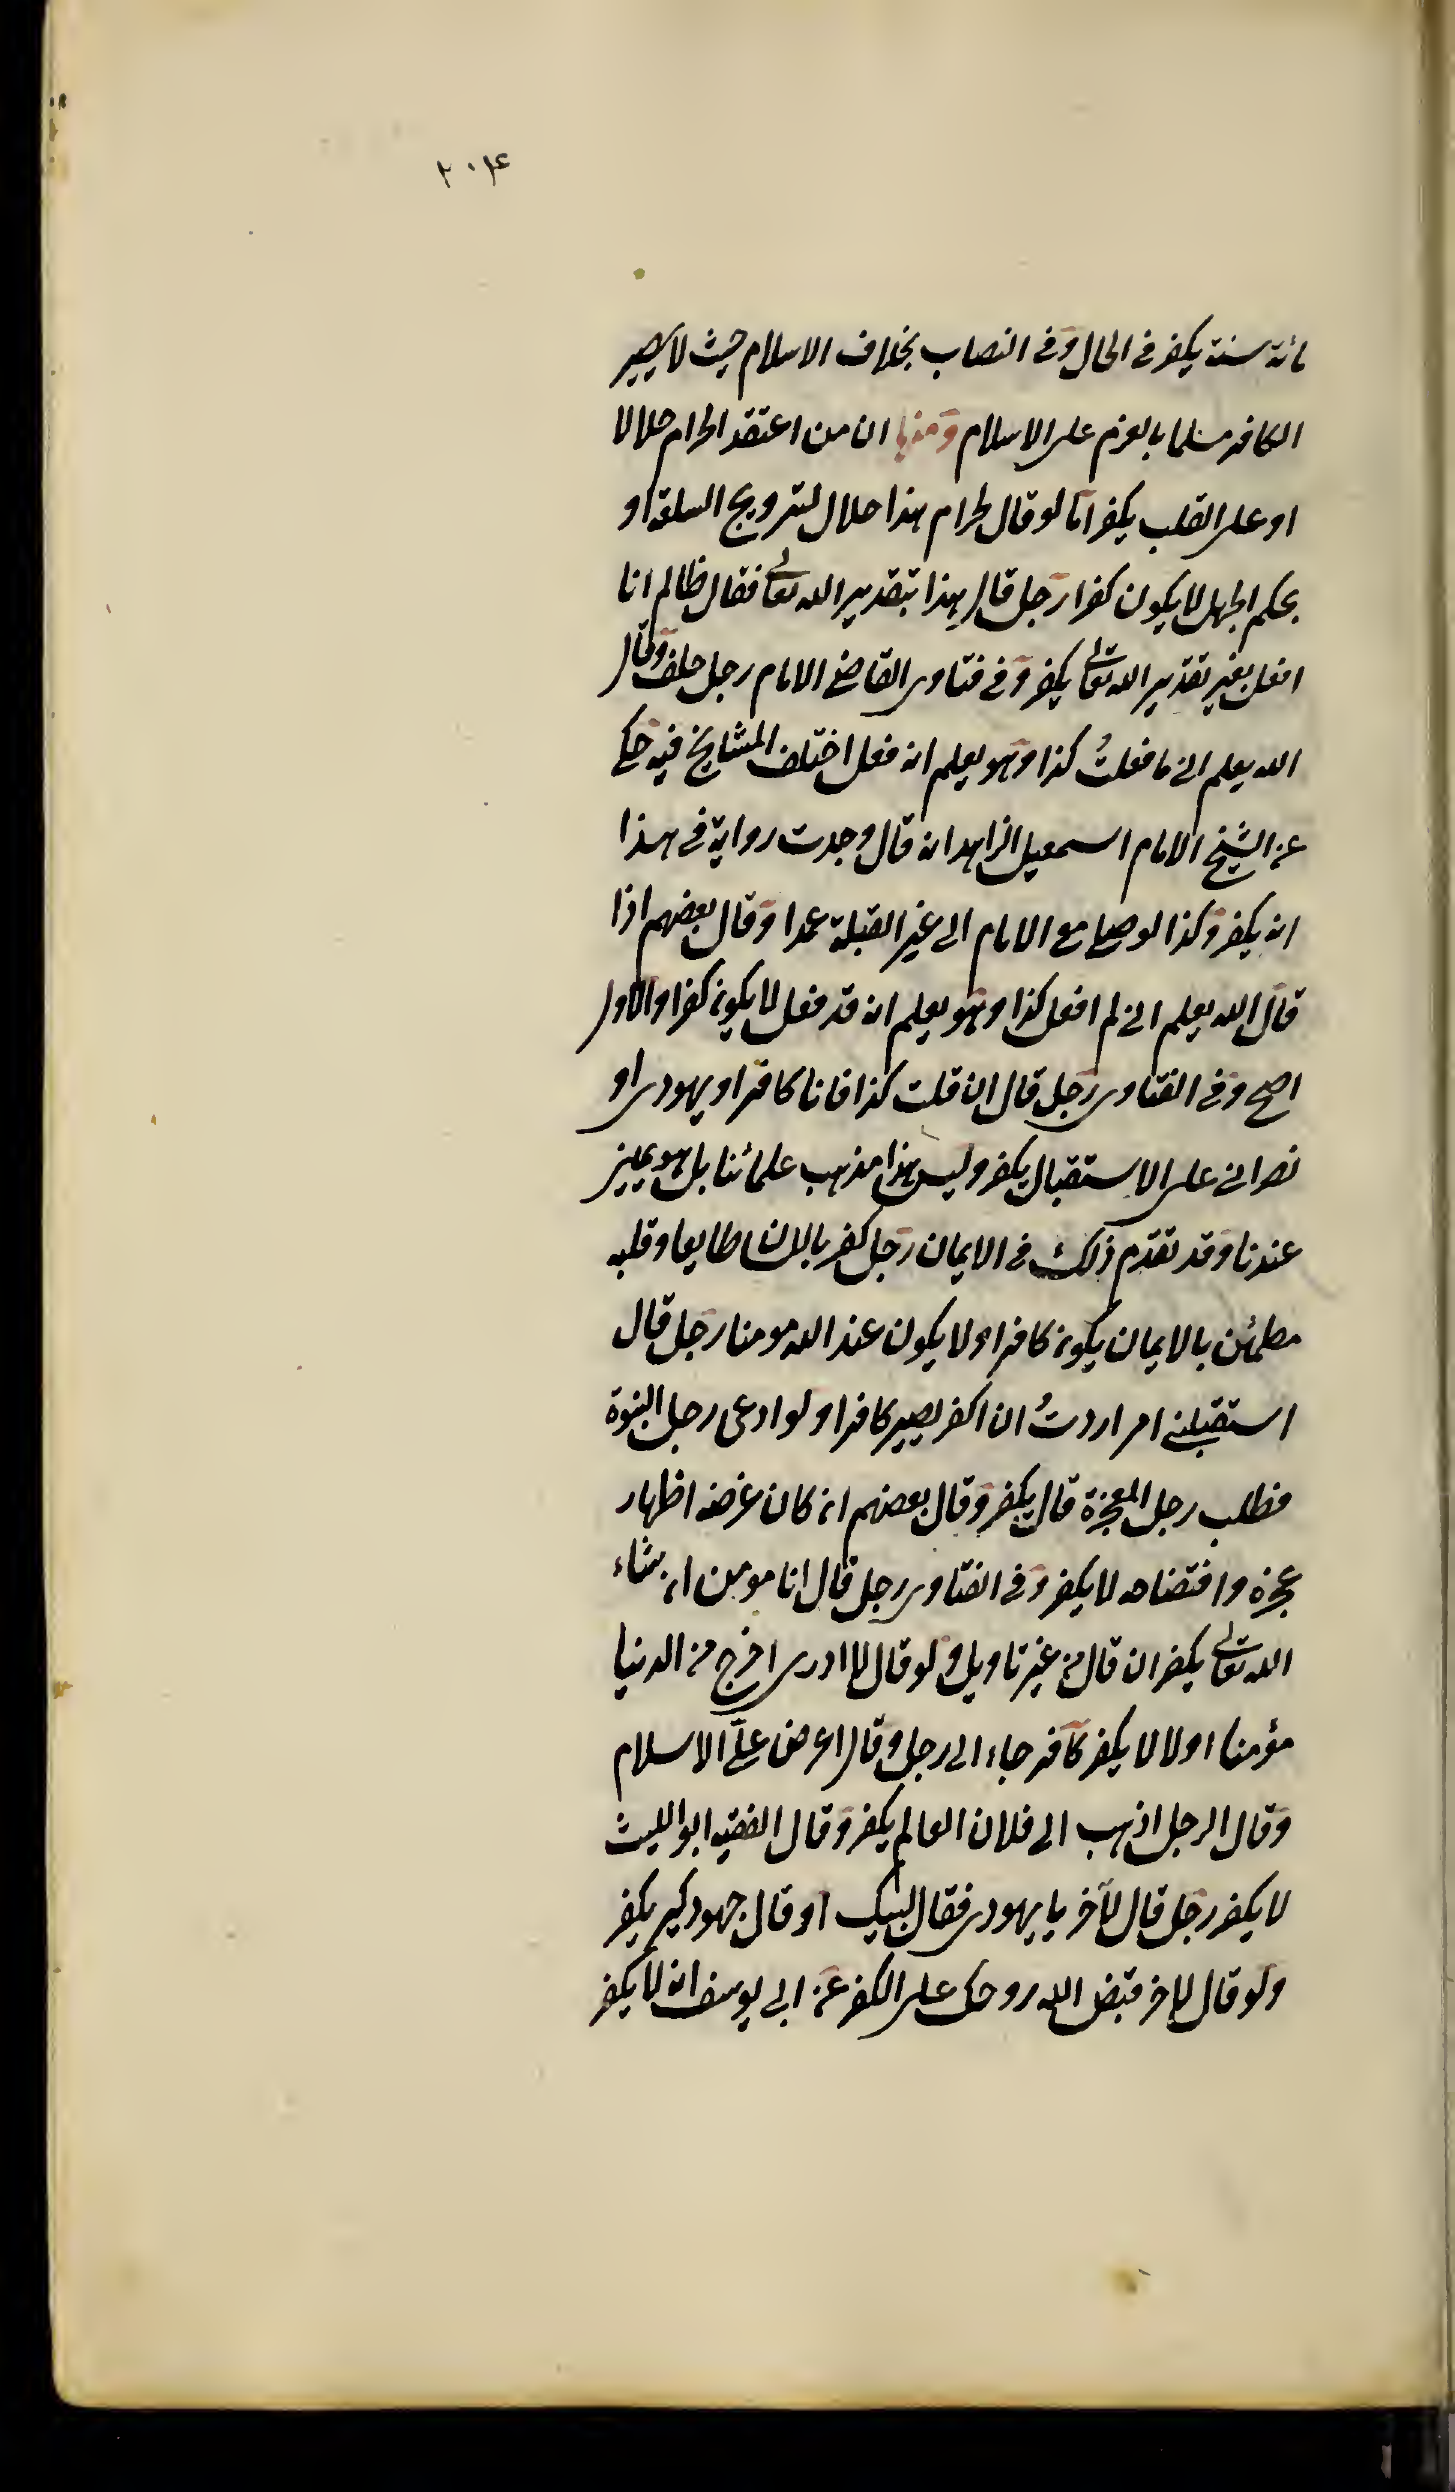 ٢٠٤
مائة سنة يكفر فى الحال وفى النصاب بخلاف الاسلام حيث لا يصير
الكافر مسلما بالعزم على الاسلام ومنها ان من اعتقد الحرام حلالا
او على القلب يكفر اما لو قال لحرام هذا حلال لترويج السلعة او
بحكم الجهل لا يكون كفرا رجل قال هذا بتقدير الله تعالى فقال ظالم انا
افعل بغير تقدير الله تعالى يكفر وفى فتاوى القاضى الامام رجل حلف وقال
الله يعلم انى ما فعلتُ كذا وهو يعلم انه فعل اختلف المشايخ فيه حكى
عن الشيخ الامام اسمعيل الزاهد انه قال وجدت رواية فى هذا
انه يكفر وكذا لو صلى مع الامام الى غير القبلة عمدا وقال بعضهم اذا
قال الله يعلم انى لم افعل كذا وهو يعلم انه قد فعل لا يكون كفرا والاول
اصح وفى الفتاوى رجل قال ان قلت كذا فانا كافر او يهودى او
نصرانى على الاستقبال يكفر وليس هذا مذهب علمائنا بل هو يمين
عندنا وقد تقدم ذلك فى الايمان رجل كفر باللسان طايعا وقلبه
مطمئن بالايمان يكون كافرا ولا يكون عند الله مومنا رجل قال
استقبلنى امر اردتُ ان اكفر يصير كافرا ولو ادعى رجل النبوة
فطلب رجل المعجزة قال يكفر وقال بعضهم ان كان غرضه اظهار
عجزه وافتضاحه لا يكفر وفى الفتاوى رجل قال انا مومن ان شاء
الله تعالى يكفر ان قال من غير تاويل ولو قال لا ادرى اخرج من الدنيا
مؤمنا او لا لا يكفر كافر جاء الى رجل وقال اعرض علىّ الاسلام
وقال الرجل اذهب الى فلان العالم يكفر وقال الفقيه ابو الليث
لا يكفر رجل قال لآخر يا يهودى فقال لبيك او قال جهود كير يكفر
ولو قال لاخر قبض الله روحك على الكفر عن ابى يوسف انه لا يكفر